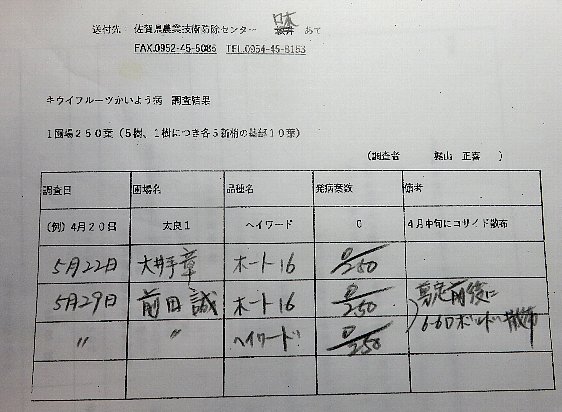 送付先 佐賀県農業技術防除センター 日本 あて
FAX.0952-45-5085 TEL.0954-45-8153
キウイフルーツかいよう病 調査結果
1圃場250葉(5樹、1樹につき各5新梢の基部10葉)
(調査者 正喜 )
調査日 圃場名 品種名 発病葉数 備考
(例)4月20日 大良1 ヘイワード 0 4月中旬にコサイド散布
5月22日 大井手章 ホート16 0/250
5月29日 前田誠 ホート16 0/250 剪定前後に
〃 〃 ヘイワード 0/250 6-6ボルドー散布